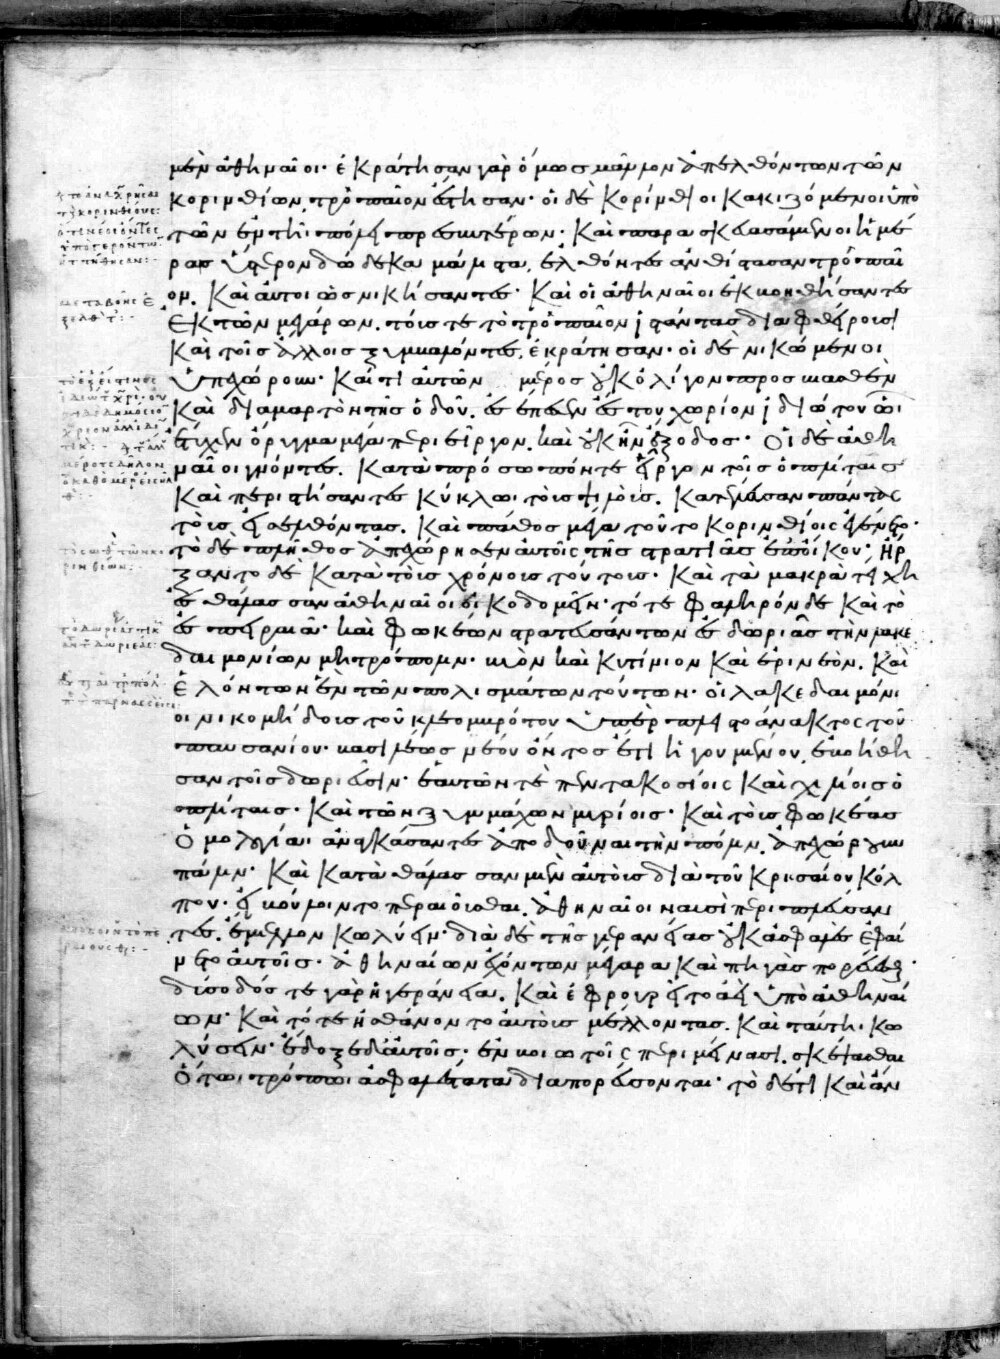 μὲν ἀθηναῖοι· ἐκράτησαν γὰρ ὅμως μᾶλλον ἀπελθόντων τῶν
κορινθίων τρόπαιον ἔστησαν· οἱ δὲ κορίνθιοι κακιζόμενοι ὑπὸ
τῶν ἐν τῆι πόλει πρεσβυτέρων· καὶ παρασκευασάμενοι ἡμέ
ραις ὕστερον δώδεκα μάλιστα, ἐλθόντες ἀνθίστασαν τρόπαι
ον. καὶ αὐτοὶ ὡς νικήσαντες· καὶ οἱ ἀθηναῖοι ἐκβοηθήσαντες
ἐκ τῶν μεγάρων. τούς τε τὸ τρόπαιον ἱστάντας διαφθείρουσι
καὶ τοῖς ἄλλοις ξυμβαλόντες, ἐκράτησαν· οἱ δὲ νικώμενοι
ὑπεχώρουν· καί τι αὐτῶν μέρος οὐκ ὀλίγον προσβιασθὲν
καὶ διαμαρτὸν τῆς ὁδοῦ. ἐσέπεσεν ἔς του χωρίον ἰδιώτου ὧι
ἔτυχεν ὄρυγμα μέγα περιεῖργον. καὶ οὐκ ἦν ἔξοδος· οἱ δὲ ἀθη
ναῖοι γνόντες. κατὰ πρόσωπόν τε εἶργον τοῖς ὁπλίταις
καὶ περιστήσαντες κύκλωι τοὺς ψιλοὺς. κατέλευσαν πάντας
τοὺς ἐσελθόντας. καὶ πάθος μέγα τοῦτο κορινθίοις ἐγένετο·
τὸ δὲ πλῆθος ἀπεχώρησεν αὐτοῖς τῆς στρατιᾶς ἐποίκου· ἤρ
ξαντο δὲ κατὰ τοὺς χρόνους τούτους· καὶ τὰ μακρὰ τείχη
ἐς θάλασσαν ἀθηναῖοι οἰκοδομεῖν· τό τε φαληρόνδε καὶ τὸ
ἐς πειραιᾶ· καὶ φωκέων στρατευσάντων ἐς δωριᾶς τὴν λακε
δαιμονίων μητρόπολιν· βοιὸν καὶ κιτίνιον καὶ ἐρινεὸν. καὶ
ἑλόντων ἓν τῶν πολισμάτων τούτων· οἱ λακεδαιμόνι
οι νικομήδους τοῦ κλεομβρότου ὑπὲρ πλειστοάνακτος τοῦ
παυσανίου· βασιλέως νέου ὄντος ἔτι ἡγουμένου, ἐβοήθη
σαν τοῖς δωριεῦσιν· ἑαυτῶν τε πεντακοσίοις καὶ χιλίοις ὁ
πλίταις· καὶ τῶν ξυμμάχων μυρίοις· καὶ τοὺς φωκέας
ὁμολογίαι ἀναγκάσαντες ἀποδοῦναι τὴν πόλιν. ἀπεχώρουν
πάλιν· καὶ κατὰ θάλασσαν μὲν αὐτοὺς διὰ τοῦ κρισαίου κόλ
που· εἰ βούλοιντο περαιοῦσθαι. ἀθηναῖοι ναυσὶ περιπλεύσαν
τες. ἔμελλον κωλύσειν· διὰ δὲ τῆς γερανείας οὐκ ἀσφαλὲς ἐφαί
νετο αὐτοῖς· ἀθηναίων ἐχόντων μέγαρα καὶ πηγὰς πορεύεσθαι·
δύσοδός τε γὰρ ἡ γεράνεια. καὶ ἐφρουρεῖτο ἀεὶ ὑπὸ ἀθηναί
ων· καὶ τότε ἠισθάνοντο αὐτοὺς μέλλοντας. καὶ ταύτηι κω
λύσειν· ἔδοξε δ' αὐτοῖς· ἐν βοιωτοῖς περιμείνασι. σκέψασθαι
ὅτωι τρόπωι ἀσφαλέστατα διαπορεύσονται· τὸ δέ τι καὶ ἄν